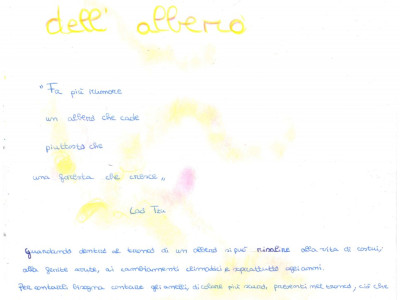 dell' albero
"Fa più rumore
un albero che cade
piuttosto che
una foresta che cresce"
Lao Tzu
Guardando dentro al tronco di un albero si può risalire alla vita di costui,
alle ferite avute, ai cambiamenti climatici e soprattutto agli anni.
Per contarli bisogna contare gli anelli, di colore più scuro, presenti nel tronco, ciò che